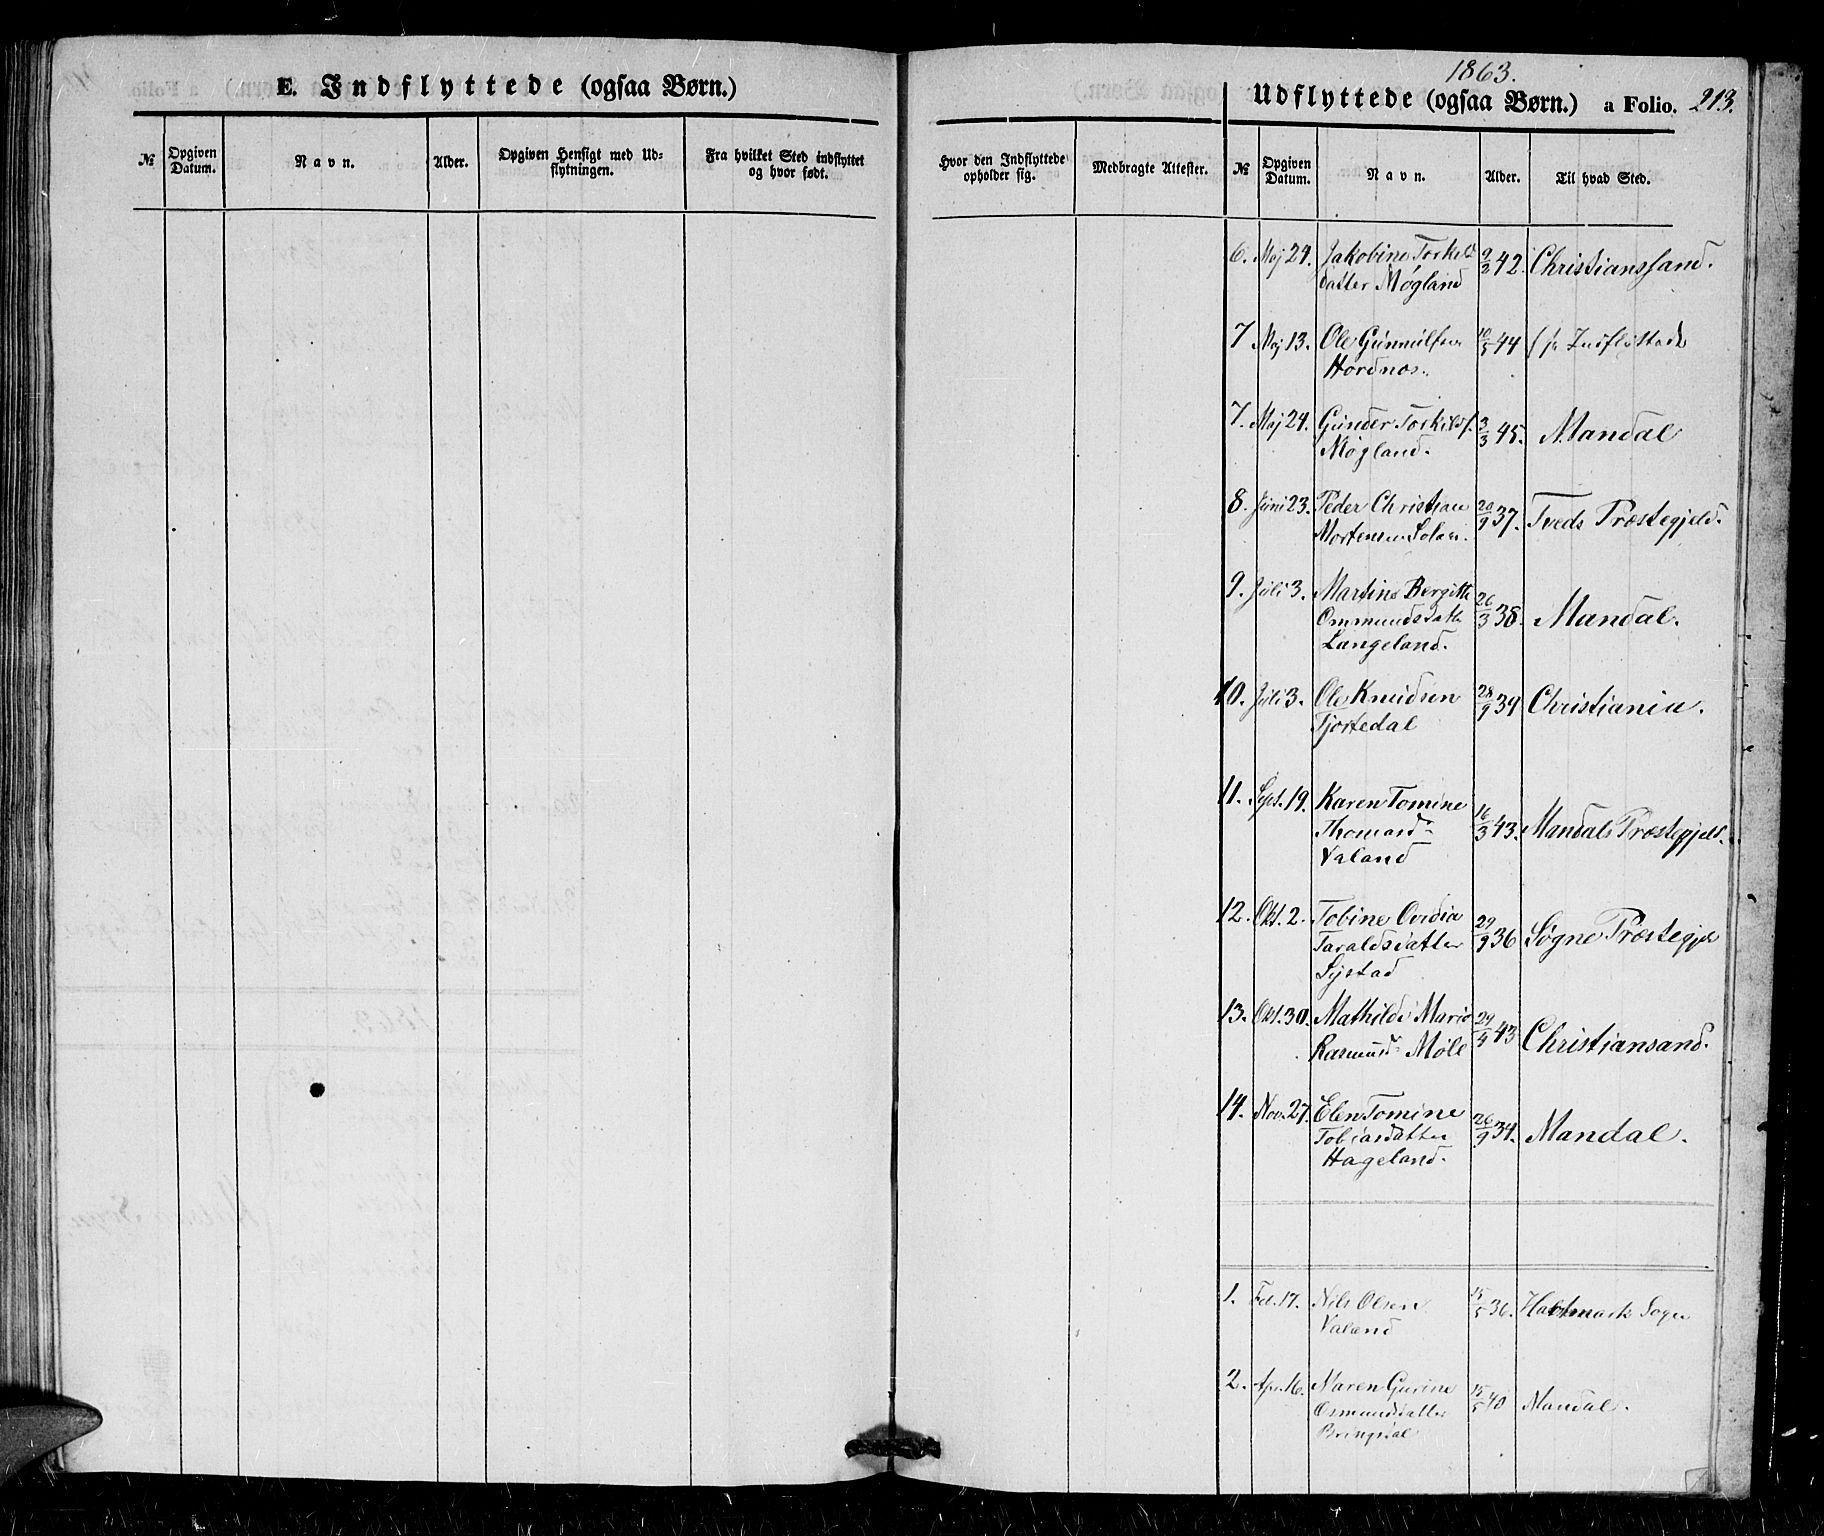 E. Indflyttede (ogsaa Børn.)
№
Opgiven Datum.
Navn.
Alder.
Opgiven Hensigt med Ud-
flytningen.
Fra hvilket Sted indflyttet
og hvor født.
1863.
Udflyttede (ogsaa Børn.) a Folio. 213.
Hvor den Indflyttede
opholder sig.
Medbragte Attester.
№
Opgiven Datum.
Navn.
Alder.
Til hvad Sted.
6. Maj 24. Jakobine Torkels 9/2 42. Christianssand.
datter Møgland
7 Maj 13. Ole Gunnulfsen 10/5 44 Indflyttede
Hordnæs.
7. Maj 24. Gunder Torkilds. 3/3 45. Mandal
Møgland.
8. Juni 23. Peder Christian 20/9 37. Tveds Præstegjeld.
Mortensen
9. Juli 3. Martine Bergitte 26/3 38. Mandal.
Ommundsdatter
Langeland.
10. Juli 3. Ole Knudsen 28/9 34 Christiania.
Tjortedal
11. Sept. 19. Karen Tomine 16/3 43. Mandals Præstegjeld.
Thomasd-
Valand
12. Okt. 2. Tobine Ovidia 29/9 36 Søgne Præstegjeld
Taraldsdatter
13. Okt. 30. Mathilde Marie 43 Christiansand.
Rasmusd- Möll
14. Nov. 27. Elen Tomine 26/9 34. Mandal.
Tobiasdatter
Hageland.
1. Feb. 17. Nils Olsen 15/5 36. Halsmark Sogn
Valand
2. Apr. 16. Maren Gurine 15/5 40 Mandal.
Osmundsdatter
Bringsdal